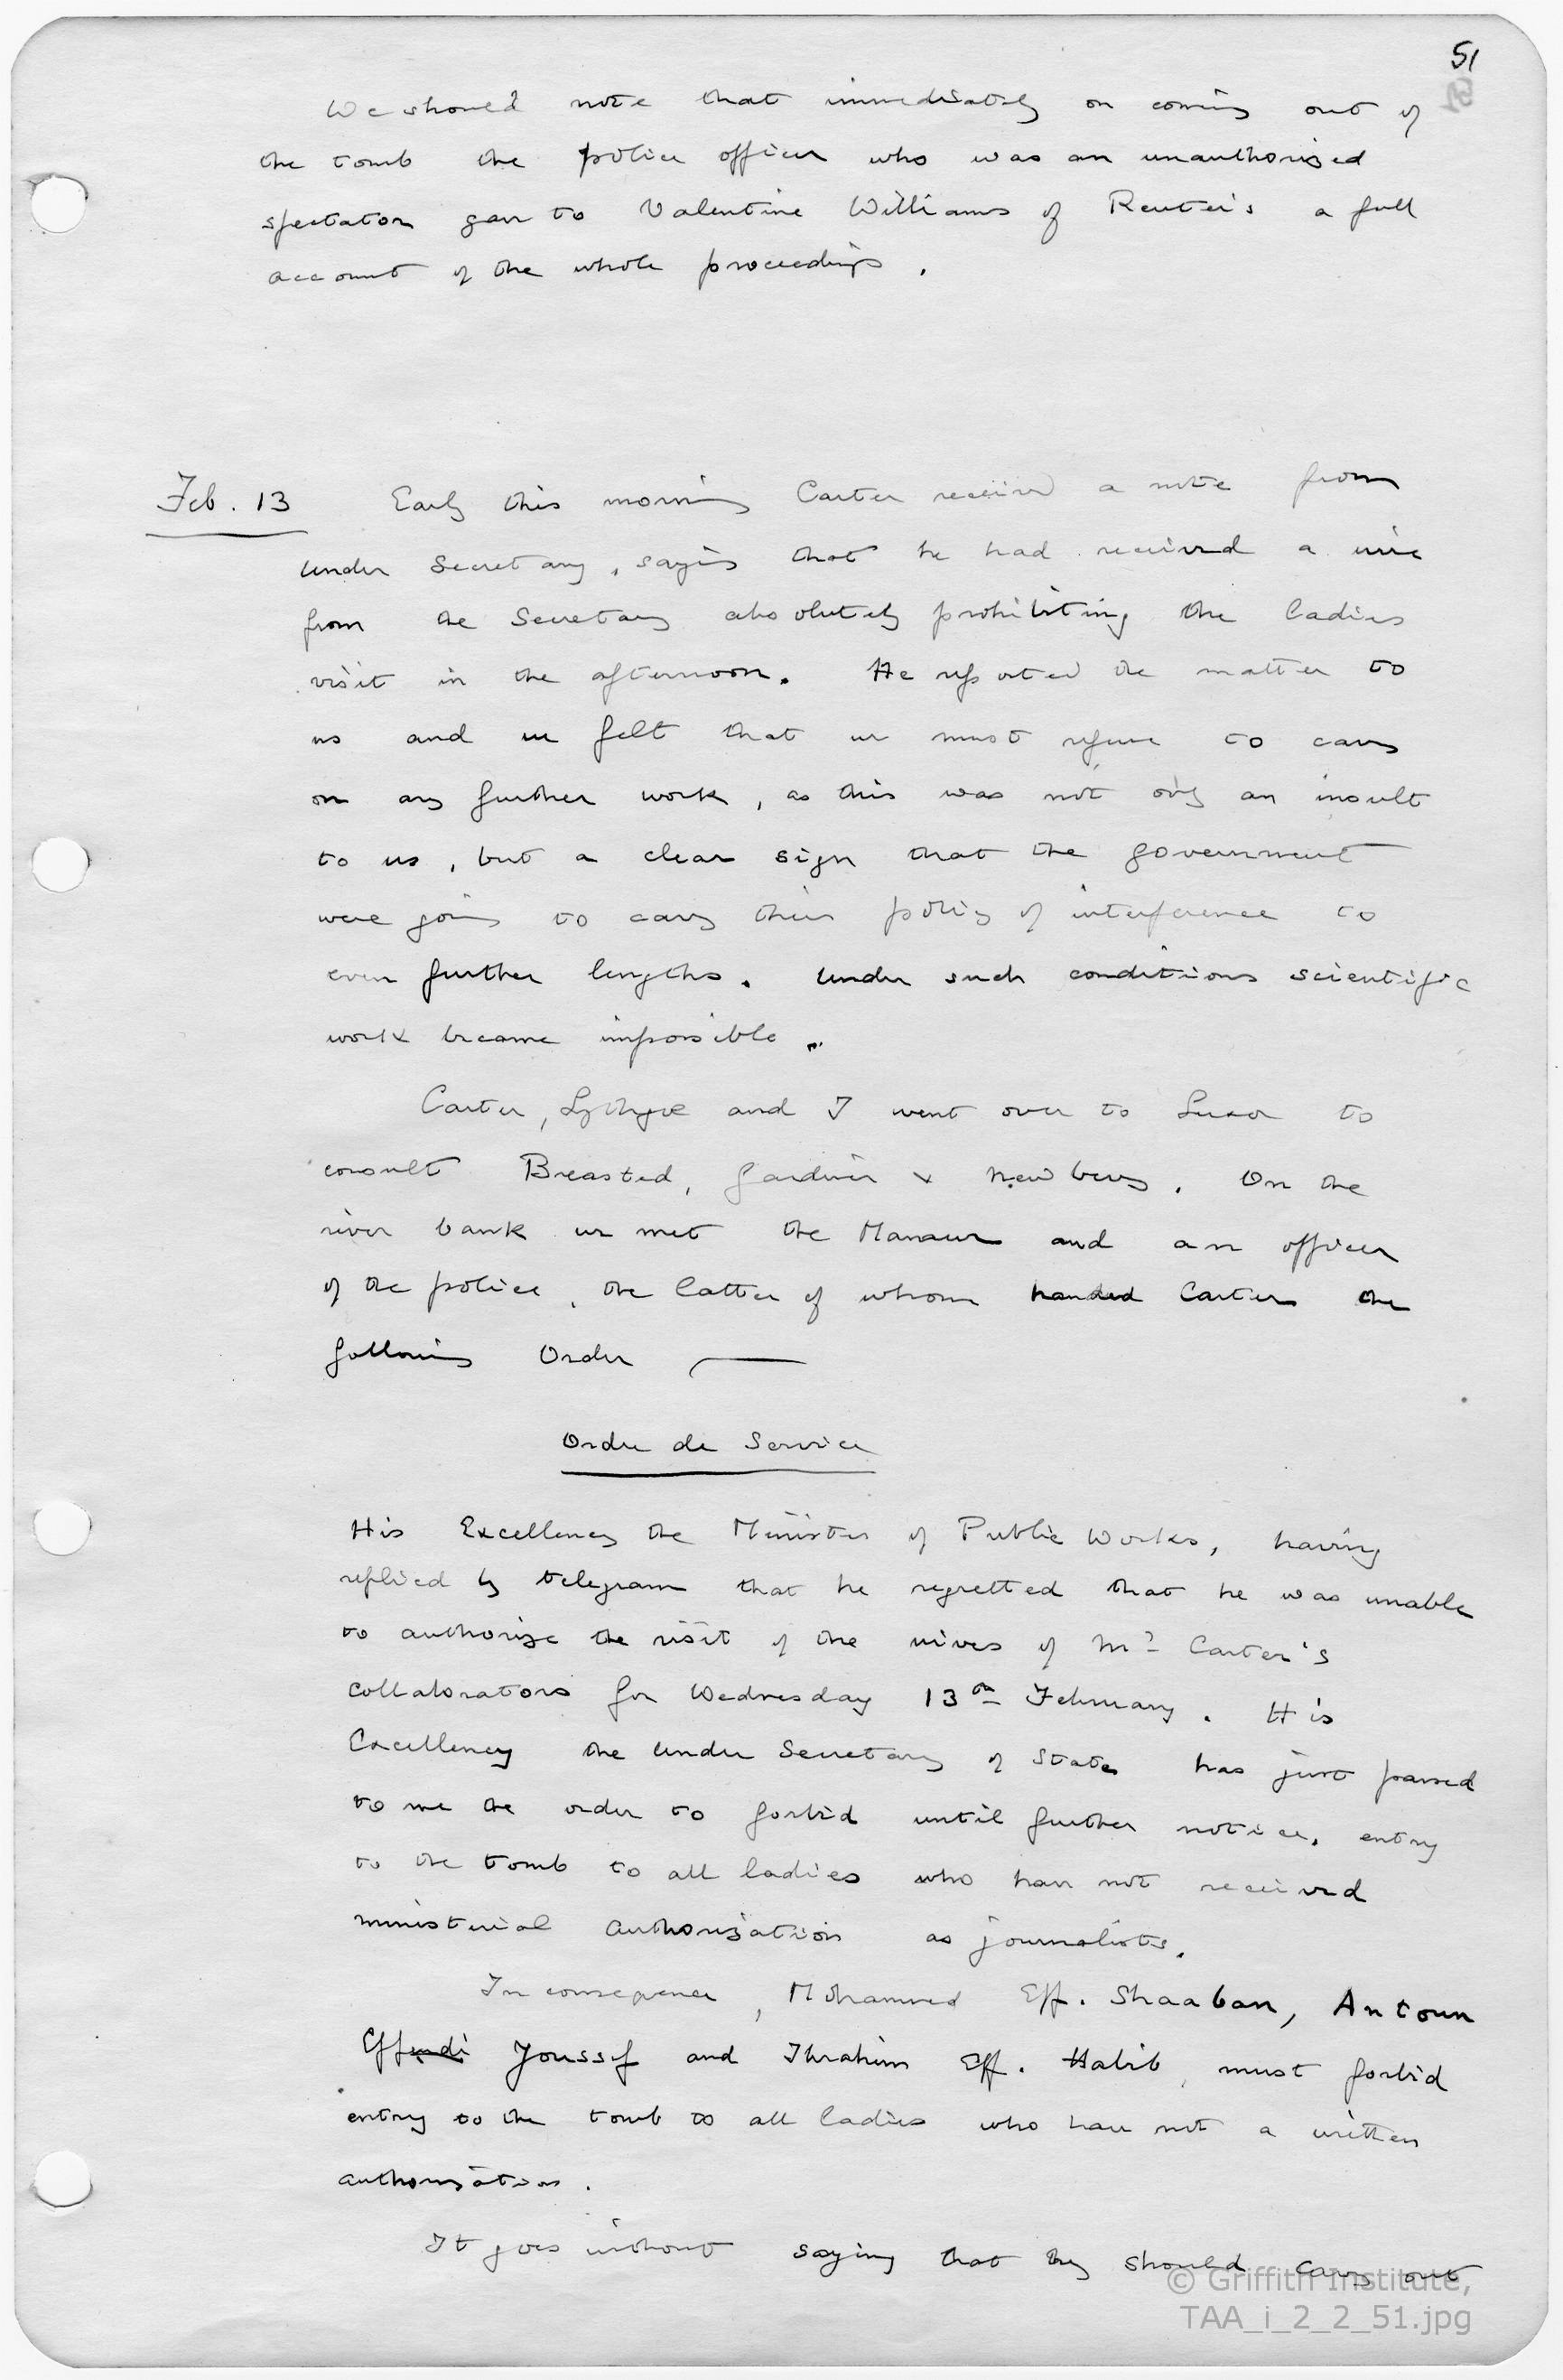 51
We should note that immediately on coming out of
the tomb the police officer who was an unauthorised
spectator gave to Valentine Williams of Reuter's a full
account of the whole proceedings.
Feb. 13 Early this morning Carter received a note from
Under Secretary, saying that he had received a wire
from the Secretary absolutely prohibiting the ladies
visit in the afternoon. He reported the matter to
us and we felt that we must refuse to carry
on any further work, as this was not only an insult
to us, but a clear sign that the government
were going to carry their policy of interference to
even further lengths. Under such conditions scientific
work became impossible.
Carter, Lythgoe and I went over to Luxor to
consult Breasted, Gardiner & Newberry. On the
river bank we met the Mamour and an officer
of the police, the latter of whom handed Carter the
following Order —
Ordre de Service
His Excellency the Minister of Public Works, having
replied by telegram that he regretted that he was unable
to authorize the visit of the wives of Mr Carter's
collaborators for Wednesday 13th February. His
Excellency the Under Secretary of State has just passed
to me the order to forbid until further notice, entry
to the tomb to all ladies who have not received
ministerial authorisation as journalists.
In consequence, Mohammed Eff. Shaaban, Antoun
Effendi Youssef and Ibrahim Eff. Habib, must forbid
entry to the tomb to all ladies who have not a written
authorisation.
It goes without saying that they should carry out
© Griffith Institute,
TAA_i_2_2_51.jpg